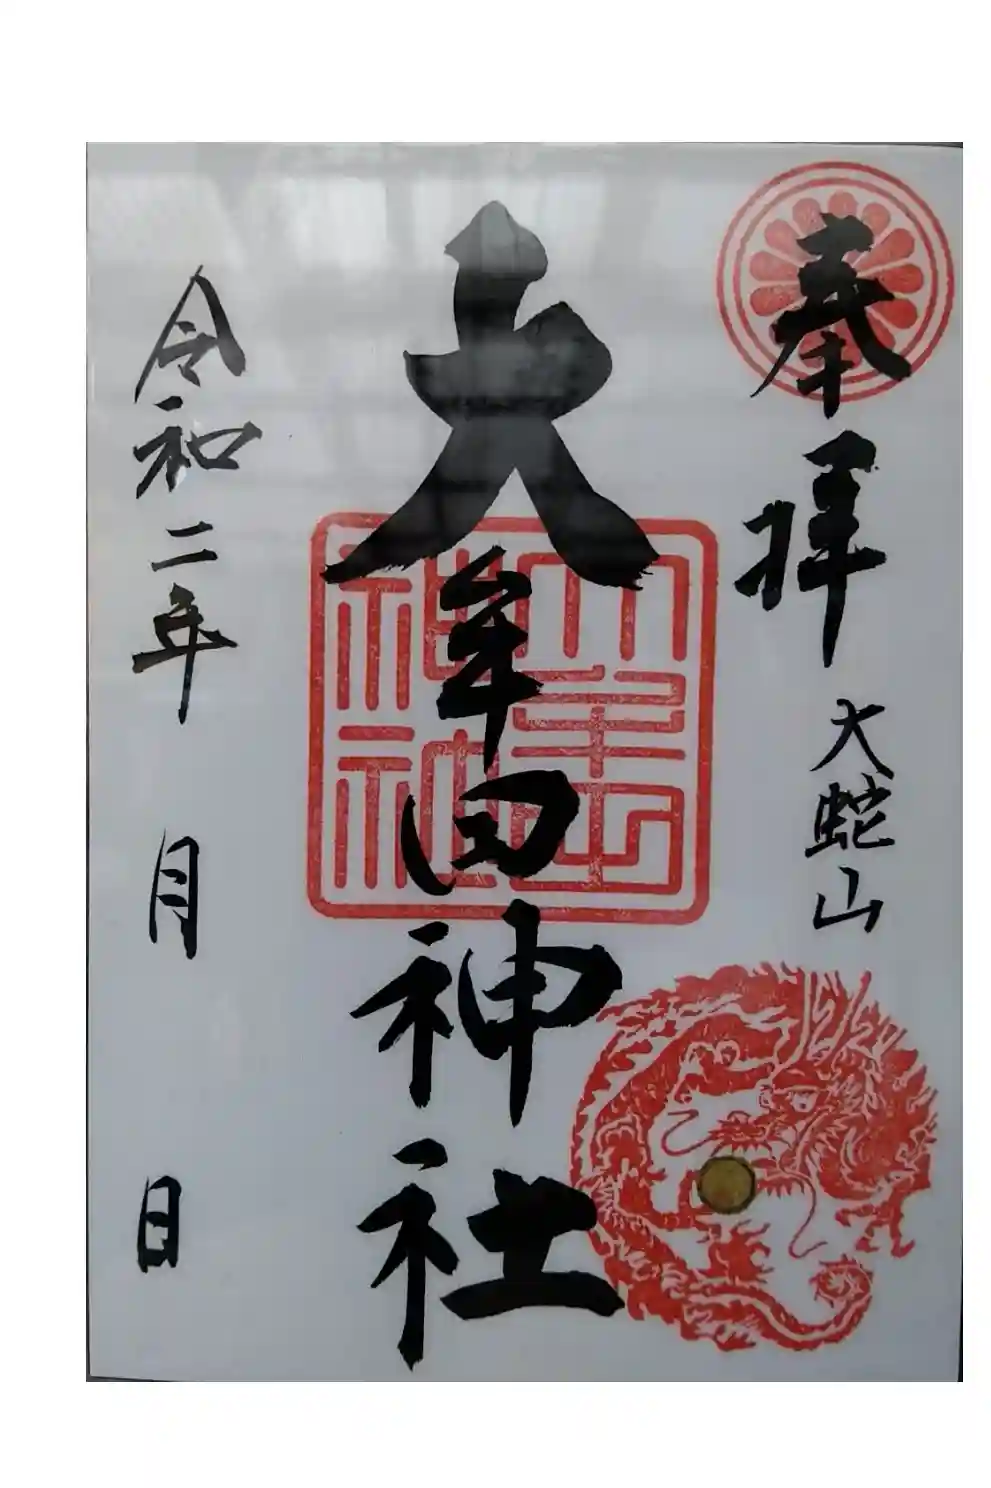 奉拝
大蛇山
大牟田神社
令和二年 月 日